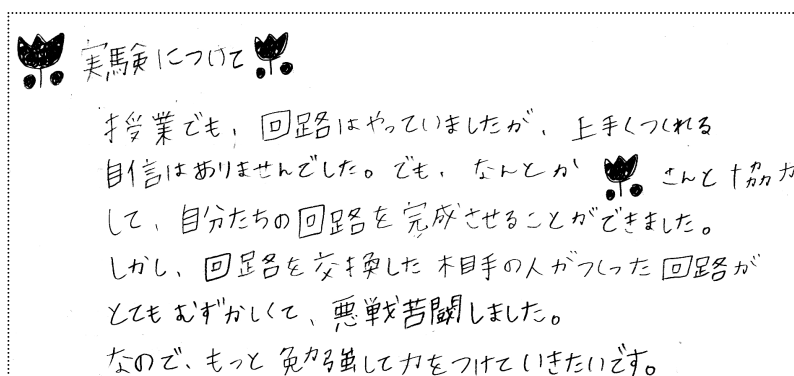 実験につけて
授業でも、回路はやっていましたが、上手くつくれる
自信はありませんでした。でも、なんとか さんと協力
して、自分たちの回路を完成させることができました。
しかし、回路を交換した相手の人がつくった回路が
とてもむずかしくて、悪戦苦闘しました。
なので、もっと勉強して力をつけていきたいです。